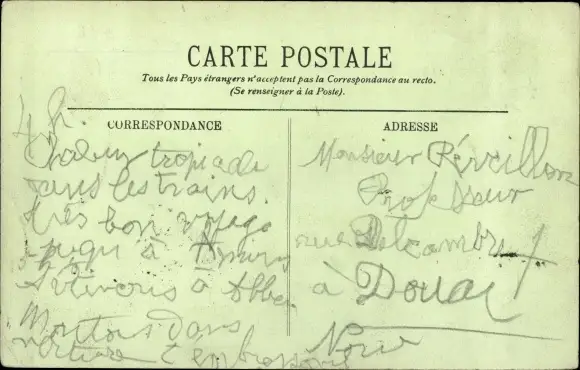 CARTE POSTALE
Tous les Pays étrangers n'acceptent pas la Correspondance au recto.
(Se renseigner à la Poste).
CORRESPONDANCE
4 h.
Chaleur tropicale
dans les trains.
très bon voyage
jusqu'à Amiens
à
Montons dans
voiture t'embrassons
ADRESSE
Monsieur
Professeur
rue Delcambre
à Douai
Nord